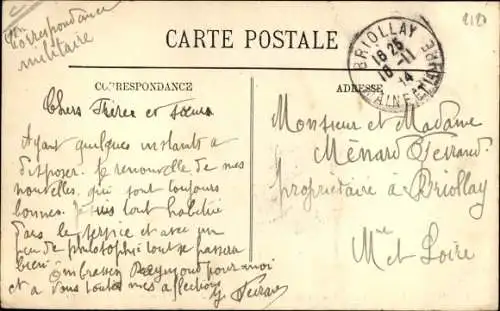 Correspondance
militaire
2120
CARTE POSTALE
BRIOLLAY
18 25
18 -11
14
MAINE-ET-LOIRE
CORRESPONDANCE
ADRESSE
Chers Frères et sœurs
Ayant quelques instants a
disposer. Je renouvelle de mes
nouvelles qui sont toujours
bonnes. Je suis tout habitué
dans le service et avec un
peu de philosophie tout se passera
bien. Embrassez Raymond pour moi
et a vous toutes mes affections
Monsieur et Madame
Ménard
propriétaire à Briollay
Mne et Loire